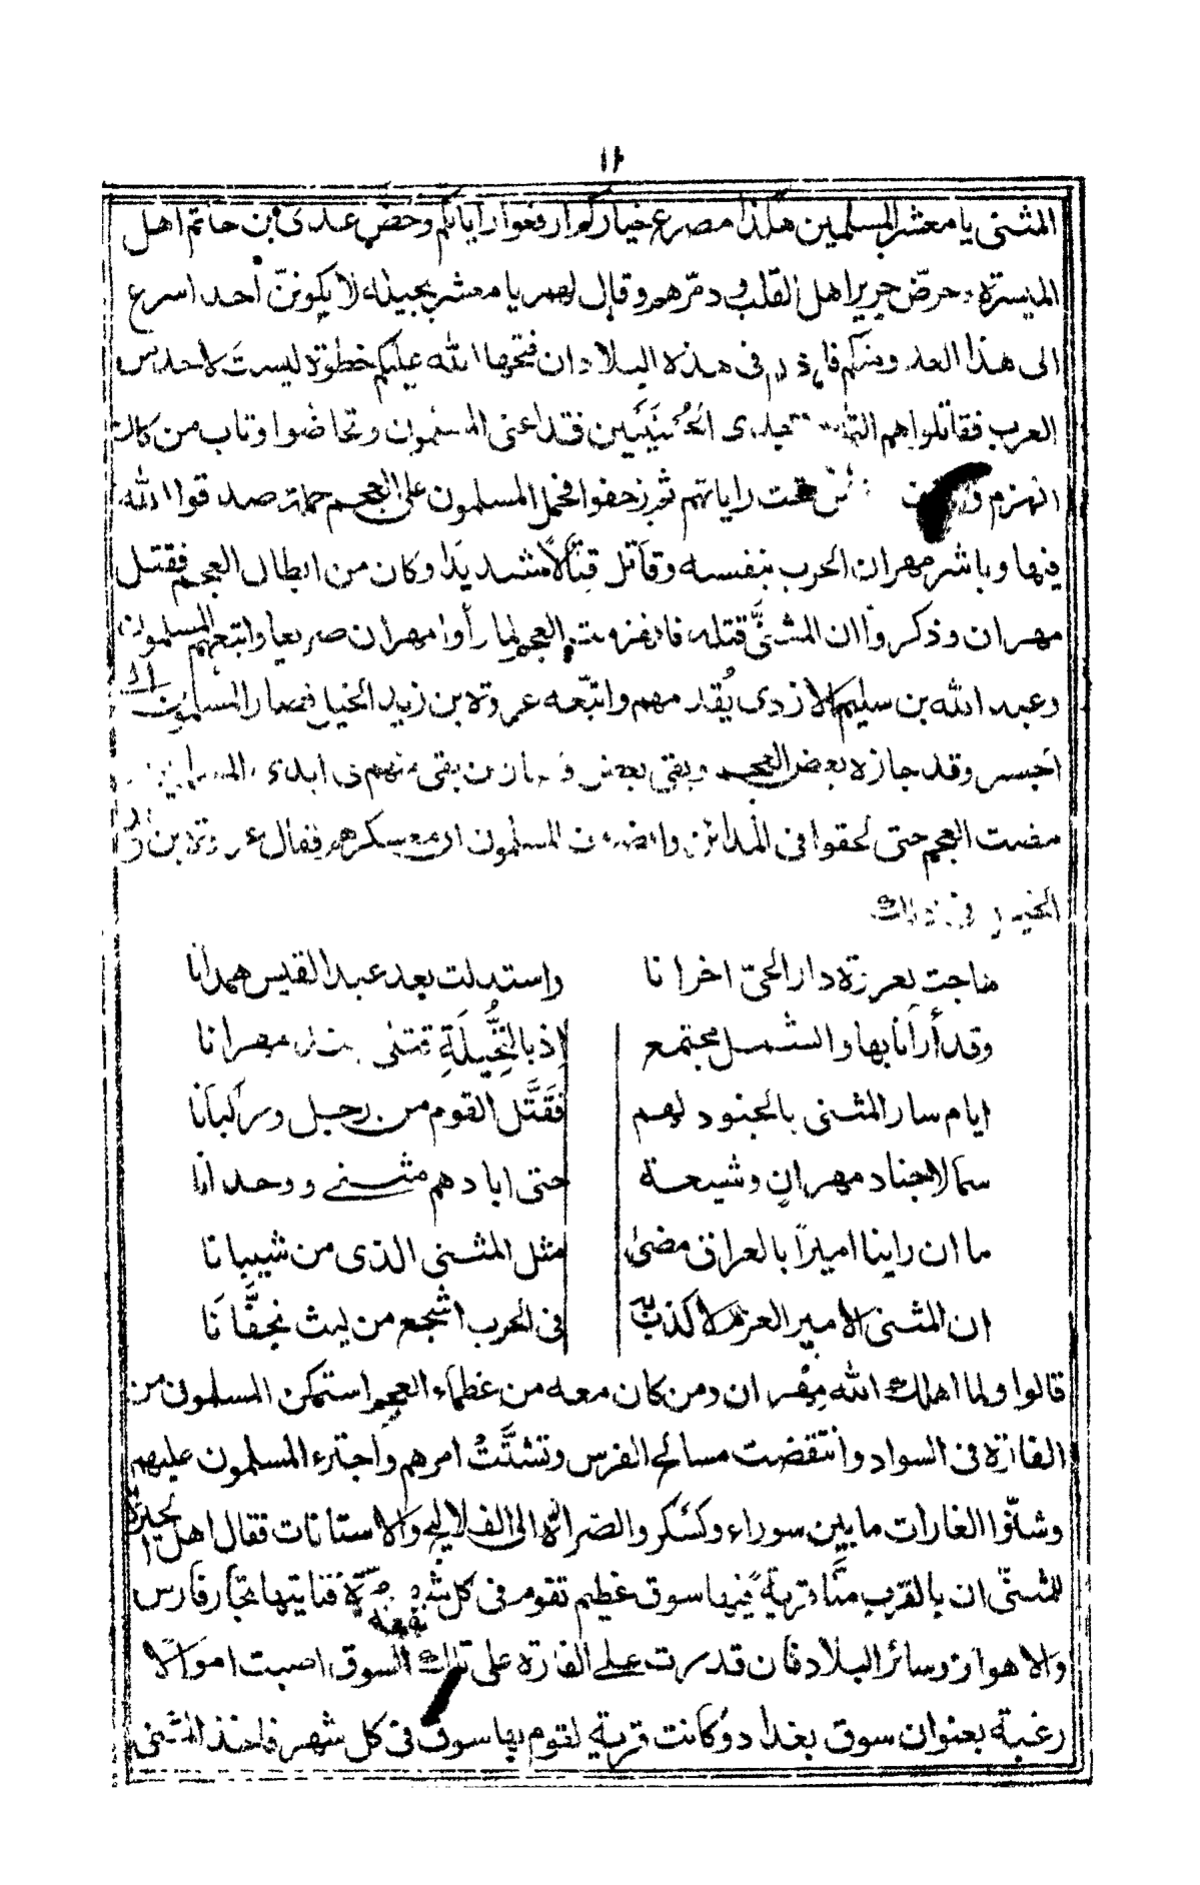 ١٢
المثنى يا معشر المسلمين هكذا مصرع خياركم ارفعوا راياتكم وحض عدى بن حاتم اهل
الميسرة وحرّض جرير اهل القلب و دمّرهم وقال لهم يا معشر بجيلة لا يكوننّ أحد اسرع
الى هذا العدو منكم فان فى هذه البلاد ان فتحها الله عليكم خطوة ليست لاحد من
العرب فقاتلوهم احدى الحُسْنَيَيْن فتداعى المسلمون وتحاضوا وتاب من كان
انهزم تحت راياتهم ثم زحفوا فحمل المسلمون على العجم حملة صدقوا الله
فيها وباشر مهران الحرب بنفسه وقاتل قتالاً شديدا وكان من ابطال العجم فقتل
مهران وذكروا ان المثنىَّ قتله فانهزمت العجم لما رأوا مهران صريعا واتبعهم المسلمون
وعبد الله بن سليم الازدى يُقدمهم واتبعه عروة بن زيد الخيل فصار المسلمون الى
الجسر وقد جازه بعض العجم وبقى بعض فصار من بقى منهم فى ايدى المسلمين
مضت العجم حتى لحقوا فى المدائن وانصرف المسلمون الى معسكرهم فقال عروة بن زيد
الخيل فى ذلك
هاجت بعروة دار الحىّ احزانا واستبدلت بعد عبد القيس همدانا
وقد أرانا بها والشمل مجتمع اذ بالنُّخَيلَةِ قتلى مهرانا
ايام سار المثنى بالجنود لهم فقَتَّل القوم من رجل وركبانا
سما لاجناد مهران وشيعة حتى ابادهم مثنى ووحدانا
ما ان راينا اميراً بالعراق مضى مثل المثنى الذى من شيبانا
ان المثنى الامير العزم لا كذب فى الحرب اشجع من ليث بخفَّانَا
قالوا ولما اهلك الله مهران ومن كان معه من عظماء العجم استمكن المسلمون من
الغارة فى السواد وانتقضت مسالح الفرس وتشتَّتْ امرهم واجترء المسلمون عليهم
وشنّوا الغارات ما بين سوراء وكسكر والصّراة الى الفلاليج والاستانات فقال اهل الحيرة
للمثنّى ان بالقرب منَّا قرية فيها سوق عظيم تقوم فى كل مرّة فتاتيها تجار فارس
والاهواز وسائر البلاد فان قدرت على الغارة على تلك السوق اصبت اموالا
رغبة بعنوان سوق بغداد وكانت قرية لقوم بها سوق فى كل شهر فاخذ المثنى